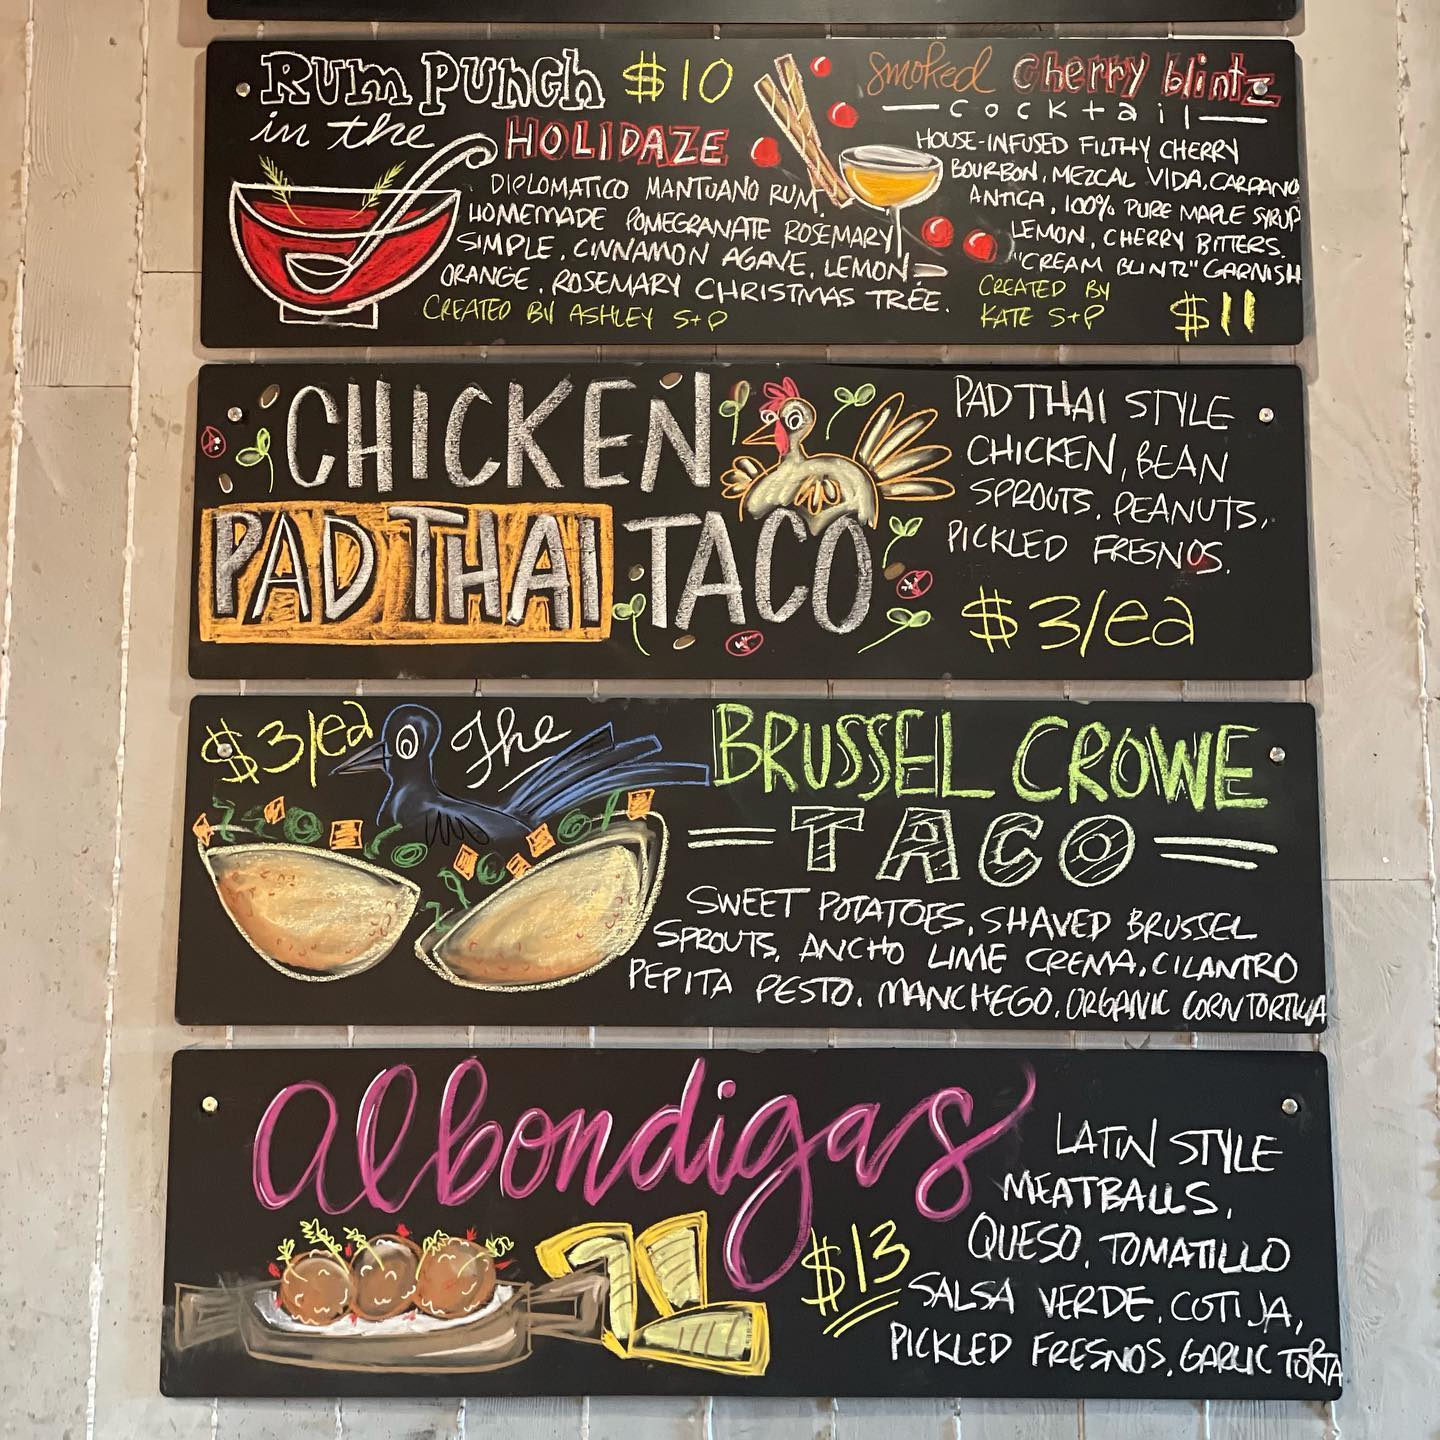 Rum Punch $10
in the HOLIDAZE
DIPLOMATICO MANTUANO RUM,
HOMEMADE POMEGRANATE ROSEMARY
SIMPLE, CINNAMON AGAVE, LEMON
ORANGE, ROSEMARY CHRISTMAS TREE.
CREATED BY ASHLEY S+P
Smoked Cherry blintz
cocktail
HOUSE-INFUSED FILTHY CHERRY
BOURBON, MEZCAL VIDA, CARPANO
ANTICA, 100% PURE MAPLE SYRUP
LEMON, CHERRY BITTERS.
"CREAM BLINTZ" GARNISH
CREATED BY
KATE S+P $11
CHICKEN
PAD THAI TACO
PAD THAI STYLE
CHICKEN, BEAN
SPROUTS, PEANUTS,
PICKLED FRESNOS.
$3/ea
$3/ea The BRUSSEL CROWE
TACO
SWEET POTATOES, SHAVED BRUSSEL
SPROUTS, ANCHO LIME CREMA, CILANTRO
PEPITA PESTO, MANCHEGO, ORGANIC CORN TORTILLA
Albondigas
$13
LATIN STYLE
MEATBALLS,
QUESO, TOMATILLO
SALSA VERDE, COTIJA,
PICKLED FRESNOS, GARLIC TORTA